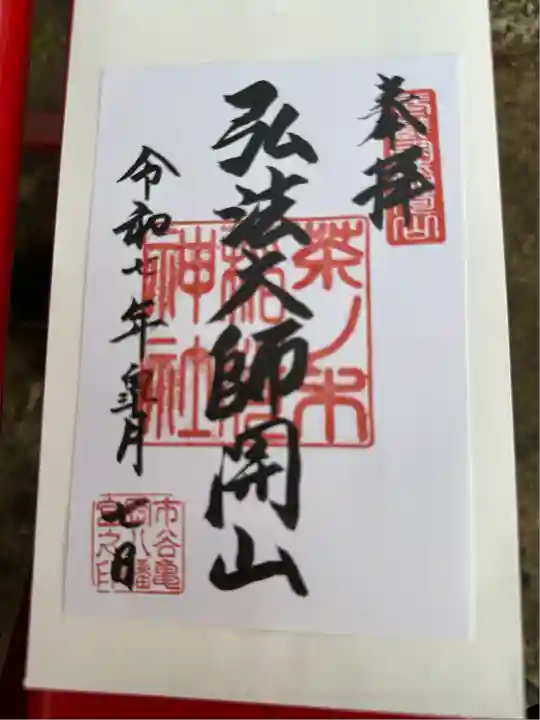 奉拝
弘法大師開山
茶ノ木
稲荷
神社
令和七年皐月
七日
市谷亀
岡八幡
宮之印